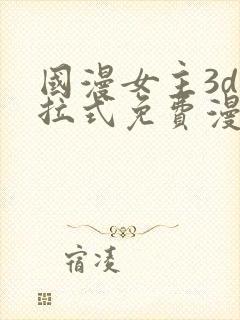 國漫女主3d
拉式免費漫
宿凌